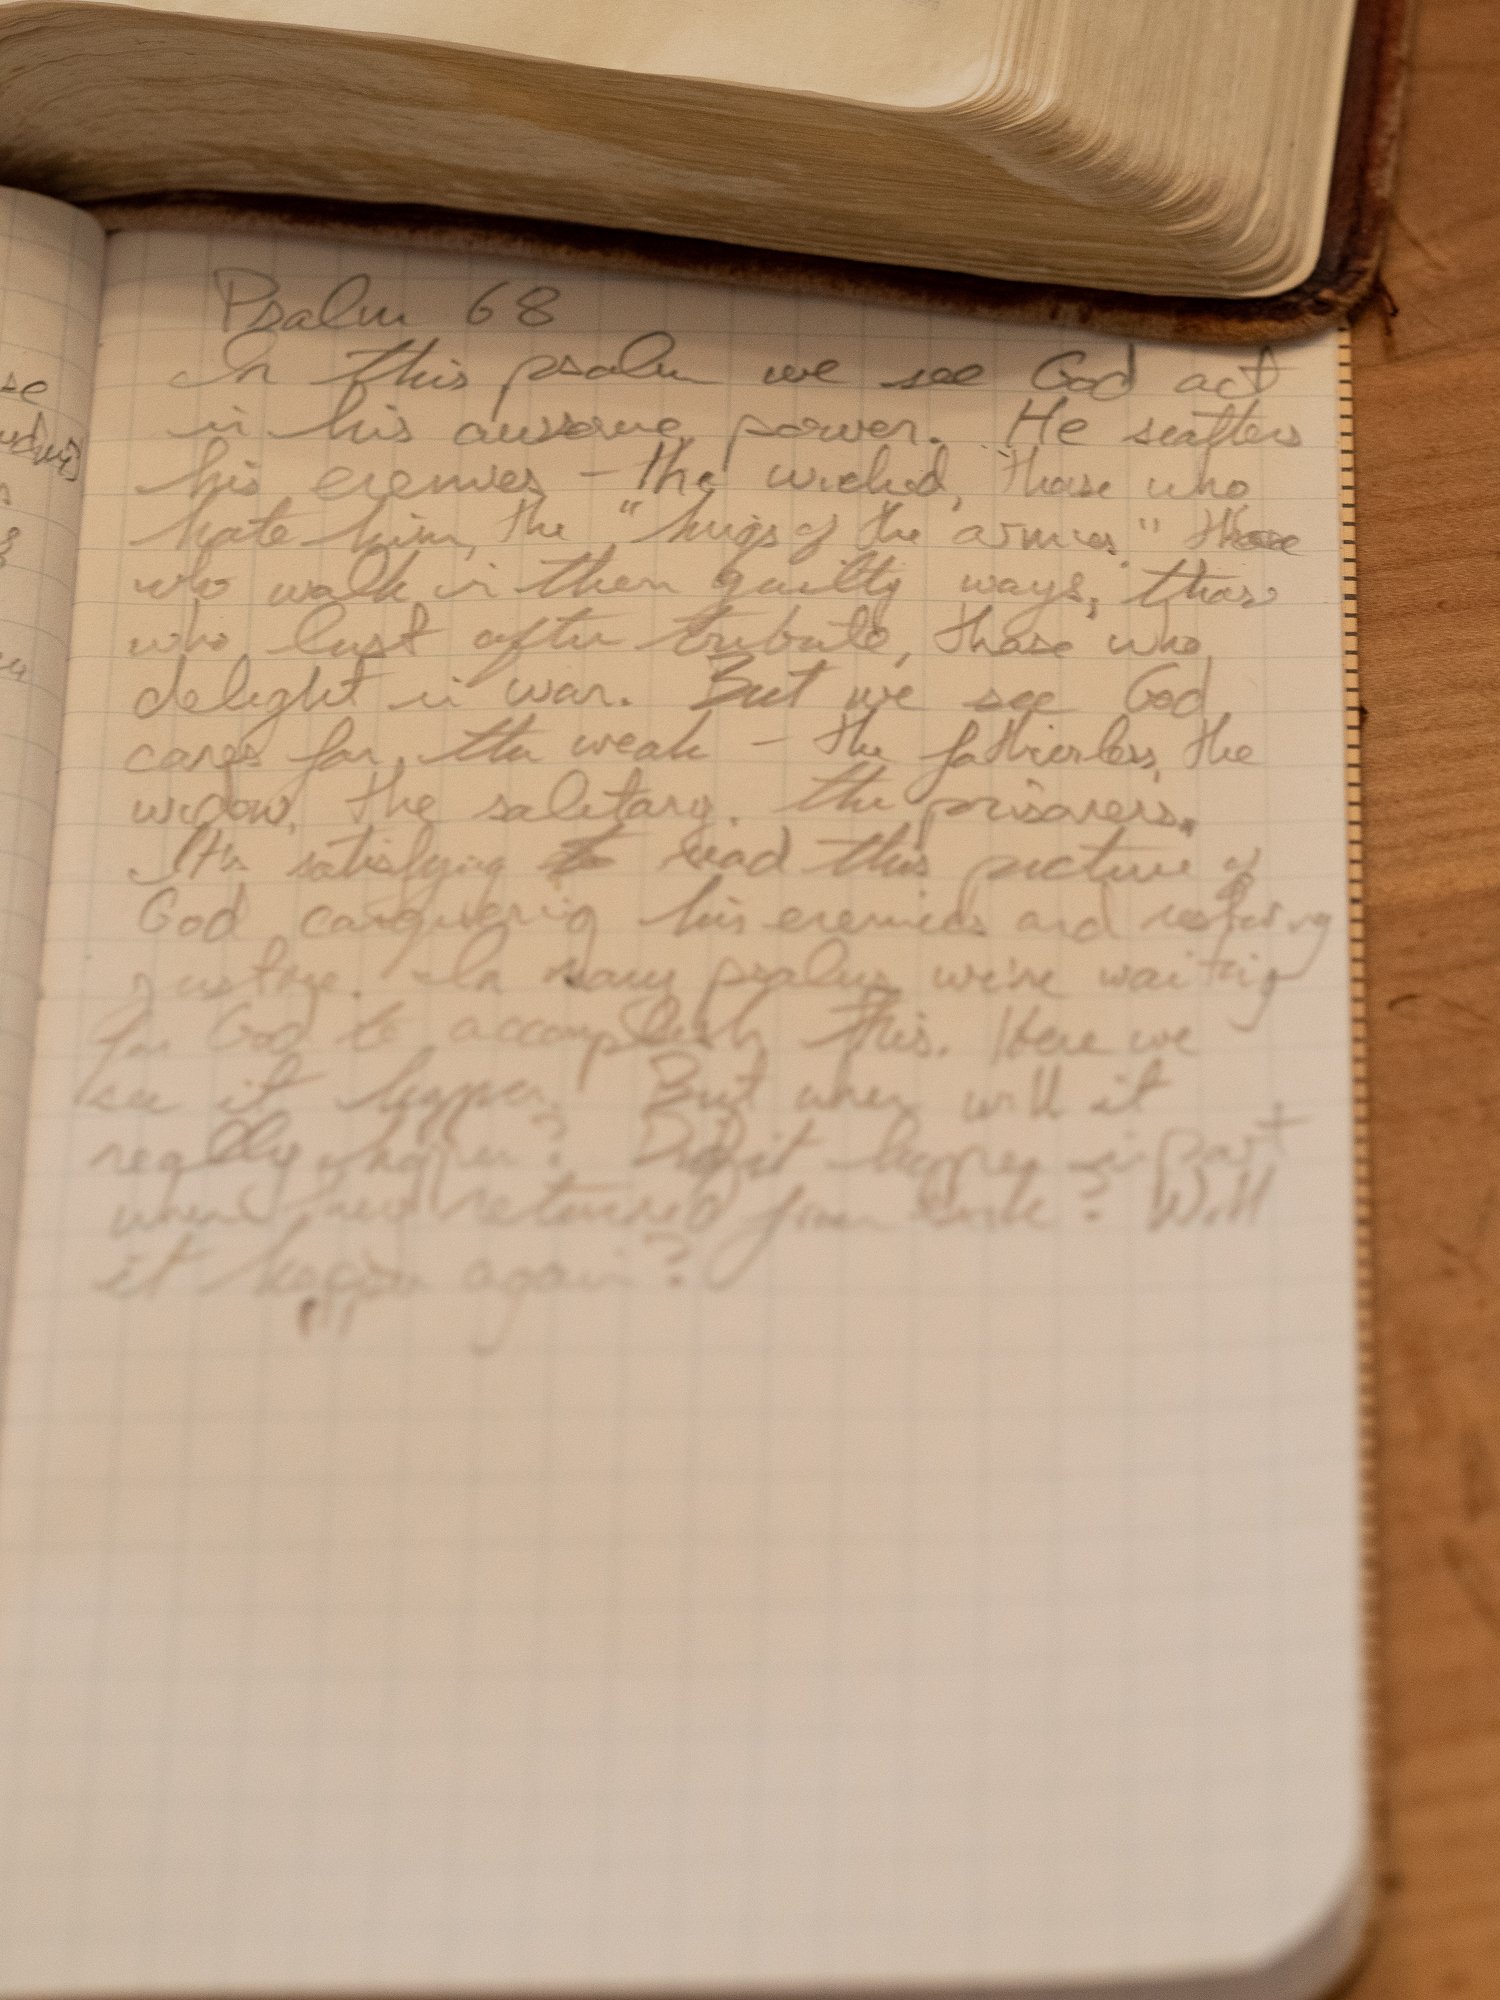 Psalm 68
In this psalm we see God act
in his awesome power. He scatters
his enemies - the wicked, those who
hate him, the "kings of the armies" those
who walk in their guilty ways, those
who lust after tribute, those who
delight in war. But we see God
cares for the weak - the fatherless, the
widow, the solitary, the prisoners.
It's satisfying to read this picture of
God conquering his enemies and restoring
justice. In many psalms we're waiting
for God to accomplish this. Here we
see it happen. But when will it
really happen? Did it happen in part
when returned from ? Will
it happen again?
se